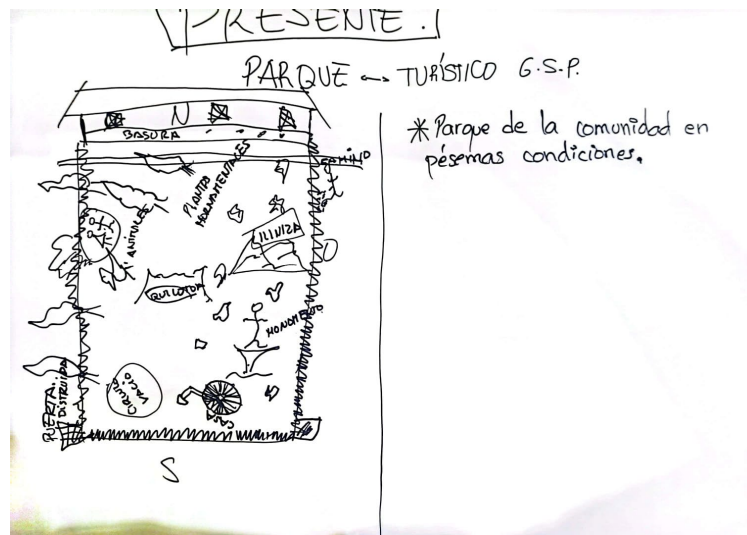 PRESENTE.
PARQUE TURÍSTICO G.S.P.
N
BASURA
CAMINO
PLANTAS
HORNAMENTALES
ANIMALES
ILINIZA
O
QUILOTOA
MONUMENTO
VACIO
PUERTA
DISTRUIDA
S
* Parque de la comunidad en
pésemas condiciones.